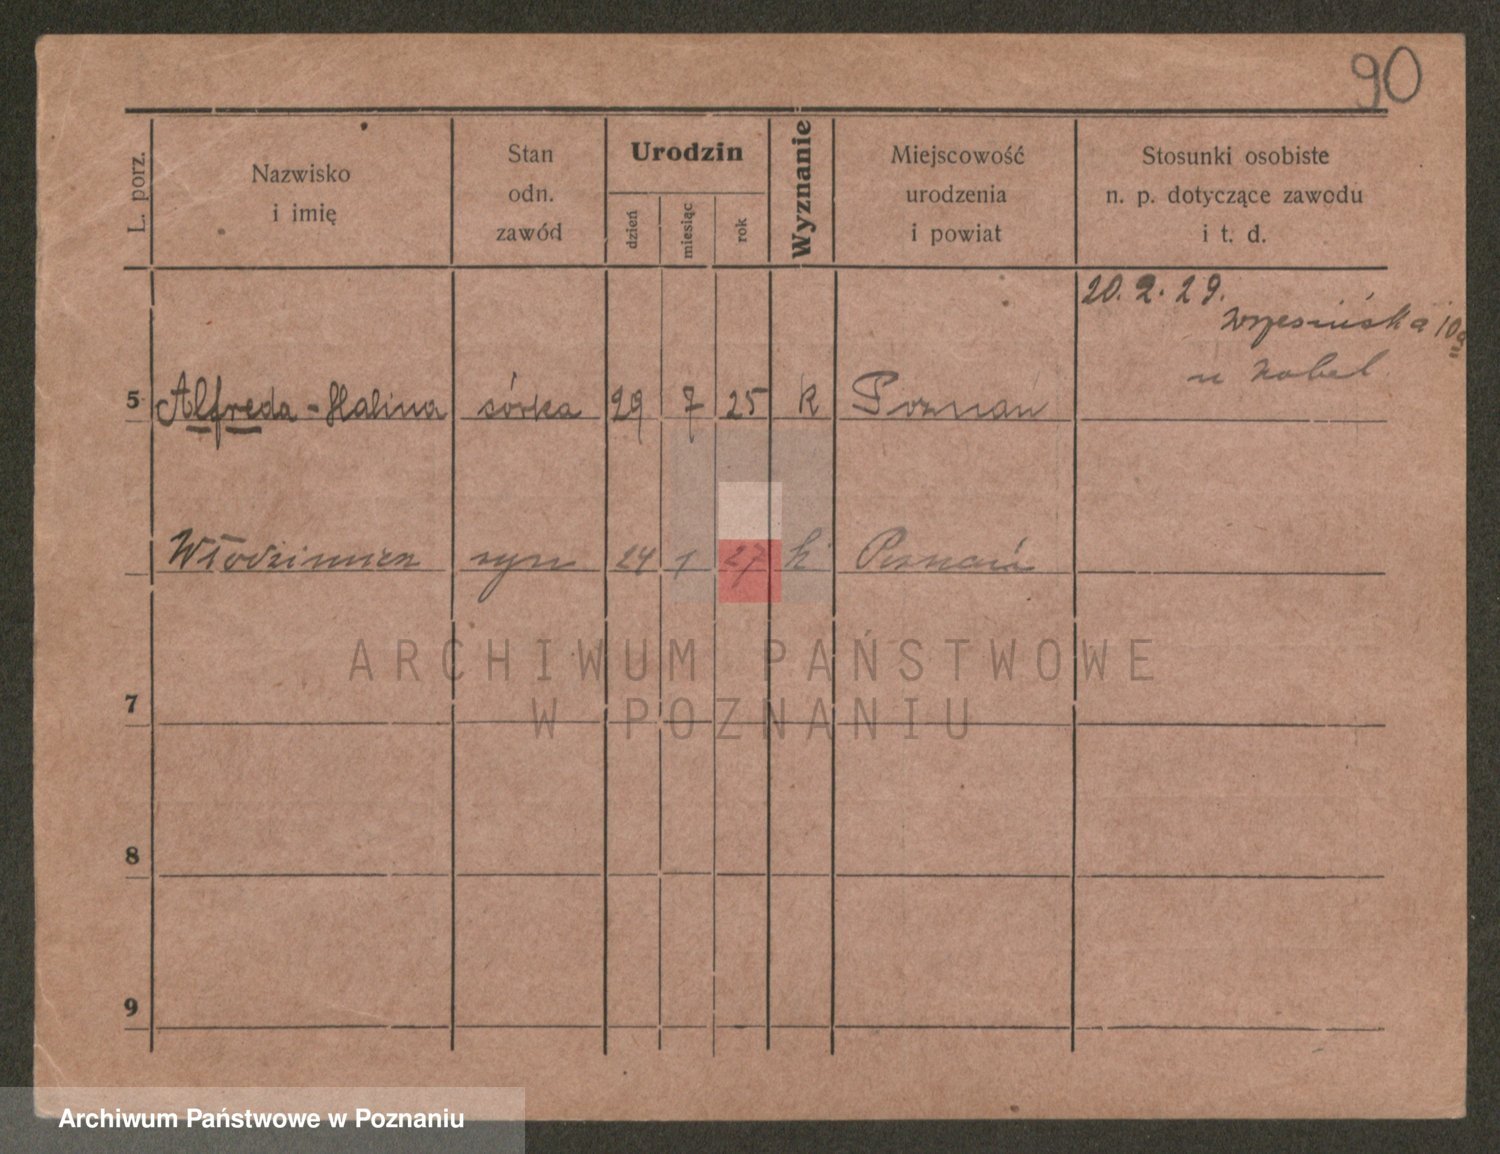 90
L. porz.
Nazwisko
i imię
Stan
odn.
zawód
Urodzin
dzień
miesiąc
rok
Wyznanie
Miejscowość
urodzenia
i powiat
Stosunki osobiste
n. p. dotyczące zawodu
i t. d.
20. 2. 29.
Wrzesińska 10a
u Nobel.
5 Alfreda - Halina córka 29 7 25 k Poznań
Włodzimierz syn 24 1 27 k Poznań
ARCHIWUM PAŃSTWOWE
W POZNANIU
7
8
9
Archiwum Państwowe w Poznaniu